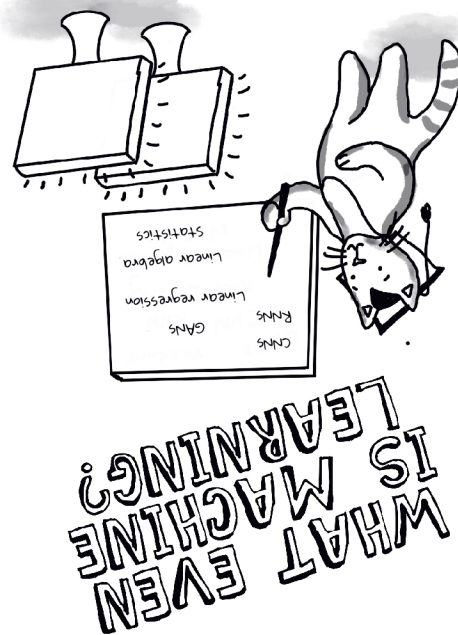 WHAT EVEN
IS MACHINE
LEARNING?
CNNs
RNNs
GANs
Linear regression
Linear algebra
Statistics